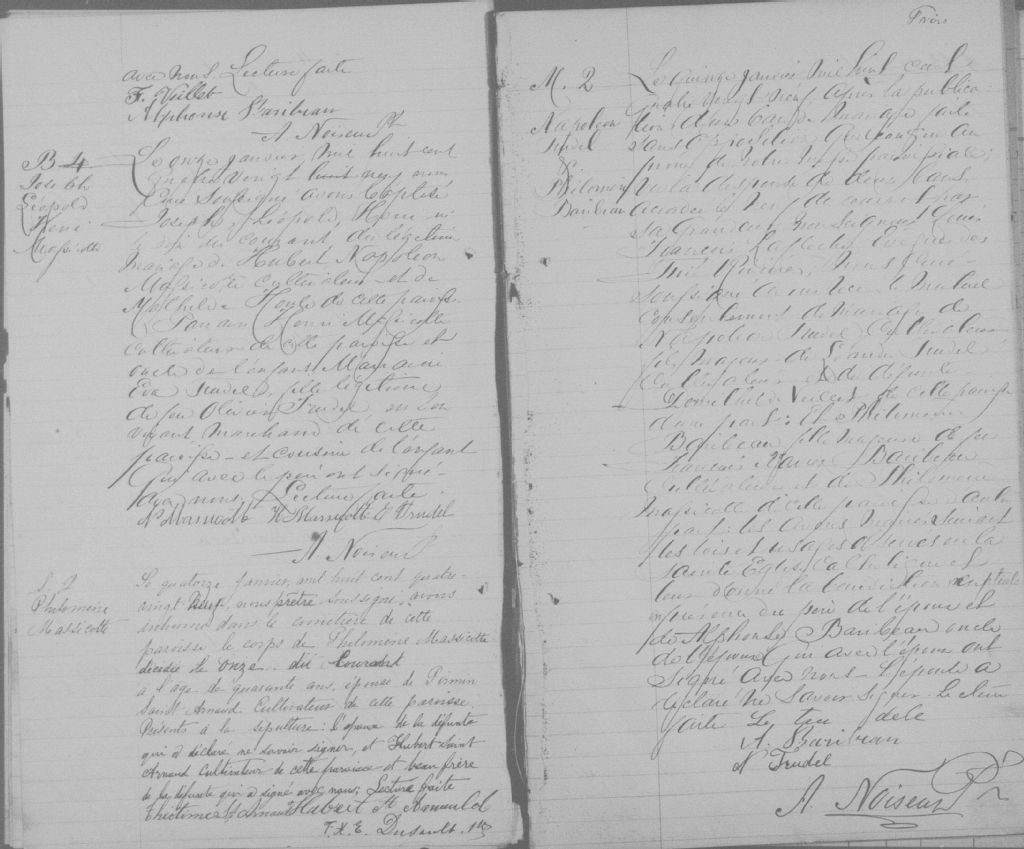 avec nous Lecture faite
F. Veillet
Alphonse Baribeau
A Noiseux Ptre
B 4
Joseph
Léopold
Henri
Massicotte
Le onze janvier, mil huit cent
quatre vingt neuf nous
Prêtre Soussigné avons baptisé
Joseph, Léopold, Henri né
du courant, du légitime
mariage de Hubert Napoléon
Massicotte Cultivateur et de
Mathilde de cette paroisse
Parrain Henri Massicotte
Cultivateur de cette paroisse et
oncle de l'enfant Marraine
Eva Trudel, fille légitime
de feu Olivier Trudel, en son
vivant, marchand de cette
paroisse et cousine de l'enfant
Qui avec le père ont signé
avec nous. Lecture faite
N Massicotte H Massicotte E Trudel
A Noiseux
S. 2
Philomène
Massicotte
Le quatorze janvier, mil huit cent quatre-
vingt neuf, nous prêtre soussigné, avons
inhumé dans le cimetière de cette
paroisse le corps de Philomène Massicotte
décédée le onze du courant
à l'age de quarante ans, épouse de Firmin
Saint Arnaud Cultivateur de cette paroisse.
Présents à la sépulture: l'époux de la défunte
qui a déclaré ne savoir signer, et Hubert Saint
Arnaud Cultivateur de cette paroisse et beau frère
de la défunte qui a signé avec nous; Lecture faite
St Arnaud Hubert St Arnauld
F. X. E. Dusault. Ptre
Trois
M. 2
Napoleon
Trudel
&
Philomène
Baribeau
Le Quinze janvier mil huit cent
quatre vingt neuf, après la publica-
tion d'un ban de mariage faite
sans opposition au
prône de notre messe paroissiale;
Vu la dispense de deux bans
accordée par
Sa Grandeur Monseigneur Louis
François Laflèche Evêque des
Trois Rivières, Nous Prêtre
Soussigné avons reçu le mutuel
Consentement de mariage de
Napoléon Trudel Cultivateur
fils majeur de Léandre Trudel
Cultivateur & de défunte
Domithilde Veillet de cette paroisse
d'une part: Et Philomène
Baribeau fille majeure de feu
François Xavier Baribeau
Cultivateur et de Philomène
Massicotte de cette paroisse d'autre
part: les avons mariés suivant
les lois et usages observés en la
sainte Eglise Catholique et
leur donné la bénédiction nuptiale
en présence du père de l'époux et
de Alphonse Baribeau oncle
de l'épouse Qui avec l'époux ont
signé avec nous. L'épouse a
déclaré ne savoir signer. Lecture
faite
A. Baribeau
N Trudel
A. Noiseux Ptre